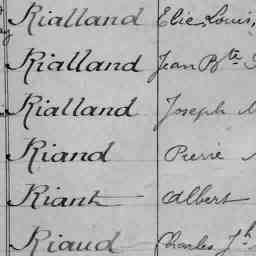 Rialland Elie, Louis,
Rialland Jean Bte
Rialland Joseph
Riand Pierre
Riant Albert
Riaud Charles Jh